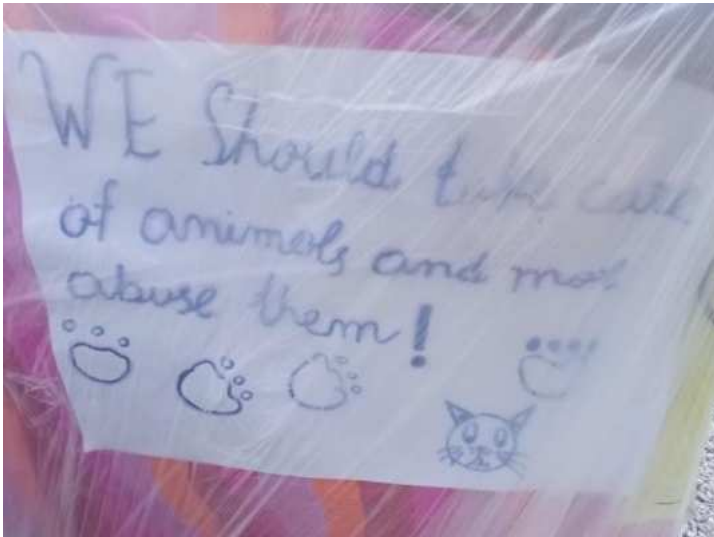 WE Should take care
of animals and not
abuse them!